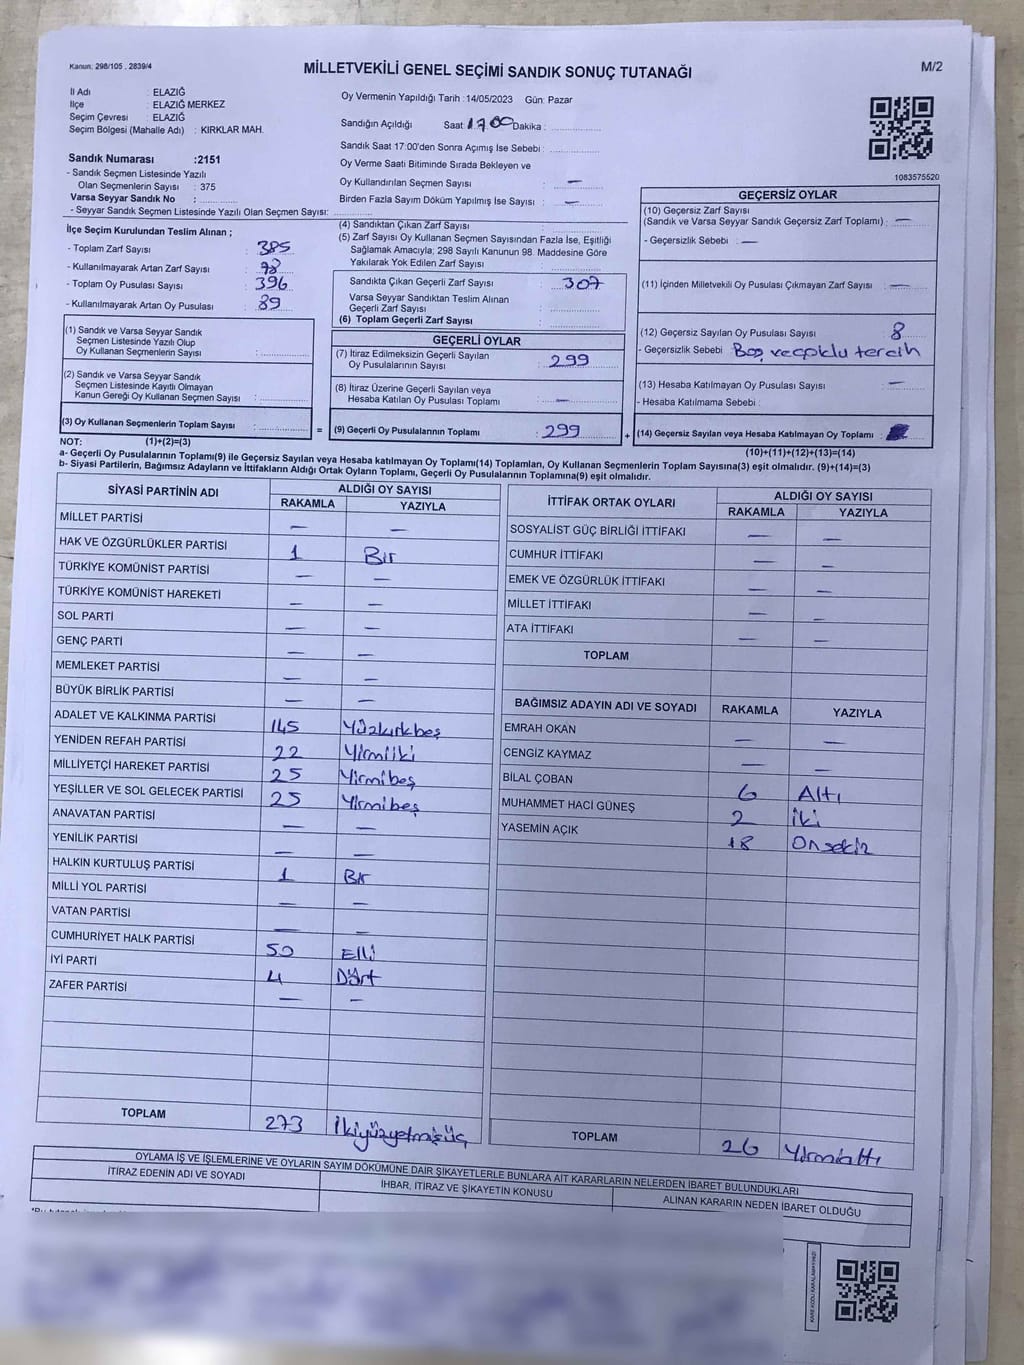 Kanun: 298/105 , 2839/4
MİLLETVEKİLİ GENEL SEÇİMİ SANDIK SONUÇ TUTANAĞI
M/2
İl Adı : ELAZIĞ
İlçe : ELAZIĞ MERKEZ
Seçim Çevresi : ELAZIĞ
Seçim Bölgesi (Mahalle Adı) : KIRKLAR MAH.
Oy Vermenin Yapıldığı Tarih : 14/05/2023 Gün: Pazar
Sandığın Açıldığı Saat: 17.00 Dakika :
Sandık Saat 17:00'den Sonra Açımış İse Sebebi :
Oy Verme Saati Bitiminde Sırada Bekleyen ve
Oy Kullandırılan Seçmen Sayısı : —
Birden Fazla Sayım Döküm Yapılmış İse Sayısı : —
1083575520
Sandık Numarası :2151
- Sandık Seçmen Listesinde Yazılı
Olan Seçmenlerin Sayısı : 375
Varsa Seyyar Sandık No :
- Seyyar Sandık Seçmen Listesinde Yazılı Olan Seçmen Sayısı:
İlçe Seçim Kurulundan Teslim Alınan ;
- Toplam Zarf Sayısı : 385
- Kullanılmayarak Artan Zarf Sayısı : 78
- Toplam Oy Pusulası Sayısı : 396
- Kullanılmayarak Artan Oy Pusulası : 89
(1) Sandık ve Varsa Seyyar Sandık
Seçmen Listesinde Yazılı Olup
Oy Kullanan Seçmenlerin Sayısı :
(2) Sandık ve Varsa Seyyar Sandık
Seçmen Listesinde Kayıtlı Olmayan
Kanun Gereği Oy Kullanan Seçmen Sayısı :
(3) Oy Kullanan Seçmenlerin Toplam Sayısı : =
(4) Sandıktan Çıkan Zarf Sayısı :
(5) Zarf Sayısı Oy Kullanan Seçmen Sayısından Fazla İse, Eşitliği
Sağlamak Amacıyla; 298 Sayılı Kanunun 98. Maddesine Göre
Yakılarak Yok Edilen Zarf Sayısı :
Sandıkta Çıkan Geçerli Zarf Sayısı : 307
Varsa Seyyar Sandıktan Teslim Alınan
Geçerli Zarf Sayısı :
(6) Toplam Geçerli Zarf Sayısı :
GEÇERLİ OYLAR
(7) İtiraz Edilmeksizin Geçerli Sayılan
Oy Pusulalarının Sayısı : 299
(8) İtiraz Üzerine Geçerli Sayılan veya
Hesaba Katılan Oy Pusulası Toplamı : —
(9) Geçerli Oy Pusulalarının Toplamı : 299 +
GEÇERSİZ OYLAR
(10) Geçersiz Zarf Sayısı
(Sandık ve Varsa Seyyar Sandık Geçersiz Zarf Toplamı) : —
- Geçersizlik Sebebi : —
(11) İçinden Milletvekili Oy Pusulası Çıkmayan Zarf Sayısı : —
(12) Geçersiz Sayılan Oy Pusulası Sayısı : 8
- Geçersizlik Sebebi : Boş ve çoklu tercih
(13) Hesaba Katılmayan Oy Pusulası Sayısı : —
- Hesaba Katılmama Sebebi :
(14) Geçersiz Sayılan veya Hesaba Katılmayan Oy Toplamı :
NOT: (1)+(2)=(3)
(10)+(11)+(12)+(13)=(14)
a- Geçerli Oy Pusulalarının Toplamı(9) ile Geçersiz Sayılan veya Hesaba katılmayan Oy Toplamı(14) Toplamları, Oy Kullanan Seçmenlerin Toplam Sayısına(3) eşit olmalıdır. (9)+(14)=(3)
b- Siyasi Partilerin, Bağımsız Adayların ve İttifakların Aldığı Ortak Oyların Toplamı, Geçerli Oy Pusulalarının Toplamına(9) eşit olmalıdır.
SİYASİ PARTİNİN ADI ALDIĞI OY SAYISI
RAKAMLA YAZIYLA
MİLLET PARTİSİ — —
HAK VE ÖZGÜRLÜKLER PARTİSİ 1 Bir
TÜRKİYE KOMÜNİST PARTİSİ — —
TÜRKİYE KOMÜNİST HAREKETİ — —
SOL PARTİ — —
GENÇ PARTİ — —
MEMLEKET PARTİSİ — —
BÜYÜK BİRLİK PARTİSİ — —
ADALET VE KALKINMA PARTİSİ 145 Yüzkırkbeş
YENİDEN REFAH PARTİSİ 22 Yirmiiki
MİLLİYETÇİ HAREKET PARTİSİ 25 Yirmibeş
YEŞİLLER VE SOL GELECEK PARTİSİ 25 Yirmibeş
ANAVATAN PARTİSİ — —
YENİLİK PARTİSİ — —
HALKIN KURTULUŞ PARTİSİ 1 Bir
MİLLİ YOL PARTİSİ — —
VATAN PARTİSİ — —
CUMHURİYET HALK PARTİSİ 50 Elli
İYİ PARTİ 4 Dört
ZAFER PARTİSİ — —
TOPLAM 273 İkiyüzyetmişüç
İTTİFAK ORTAK OYLARI ALDIĞI OY SAYISI
RAKAMLA YAZIYLA
SOSYALİST GÜÇ BİRLİĞİ İTTİFAKI — —
CUMHUR İTTİFAKI — —
EMEK VE ÖZGÜRLÜK İTTİFAKI — —
MİLLET İTTİFAKI — —
ATA İTTİFAKI — —
TOPLAM
BAĞIMSIZ ADAYIN ADI VE SOYADI RAKAMLA YAZIYLA
EMRAH OKAN — —
CENGİZ KAYMAZ — —
BİLAL ÇOBAN 6 Altı
MUHAMMET HACİ GÜNEŞ 2 İki
YASEMİN AÇIK 18 Onsekiz
TOPLAM 26 Yirmialtı
OYLAMA İŞ VE İŞLEMLERİNE VE OYLARIN SAYIM DÖKÜMÜNE DAİR ŞİKAYETLERLE BUNLARA AİT KARARLARIN NELERDEN İBARET BULUNDUKLARI
İTİRAZ EDENİN ADI VE SOYADI İHBAR, İTİRAZ VE ŞİKAYETİN KONUSU ALINAN KARARIN NEDEN İBARET OLDUĞU